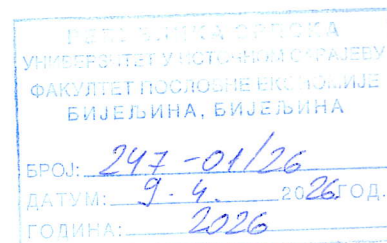 РЕПУБЛИКА СРПСКА
УНИВЕРЗИТЕТ У ИСТОЧНОМ САРАЈЕВУ
ФАКУЛТЕТ ПОСЛОВНЕ ЕКОНОМИЈЕ
БИЈЕЉИНА, БИЈЕЉИНА
БРОЈ: 247-01/26
ДАТУМ: 9. 4. 2026 ГОД.
ГОДИНА: 2026